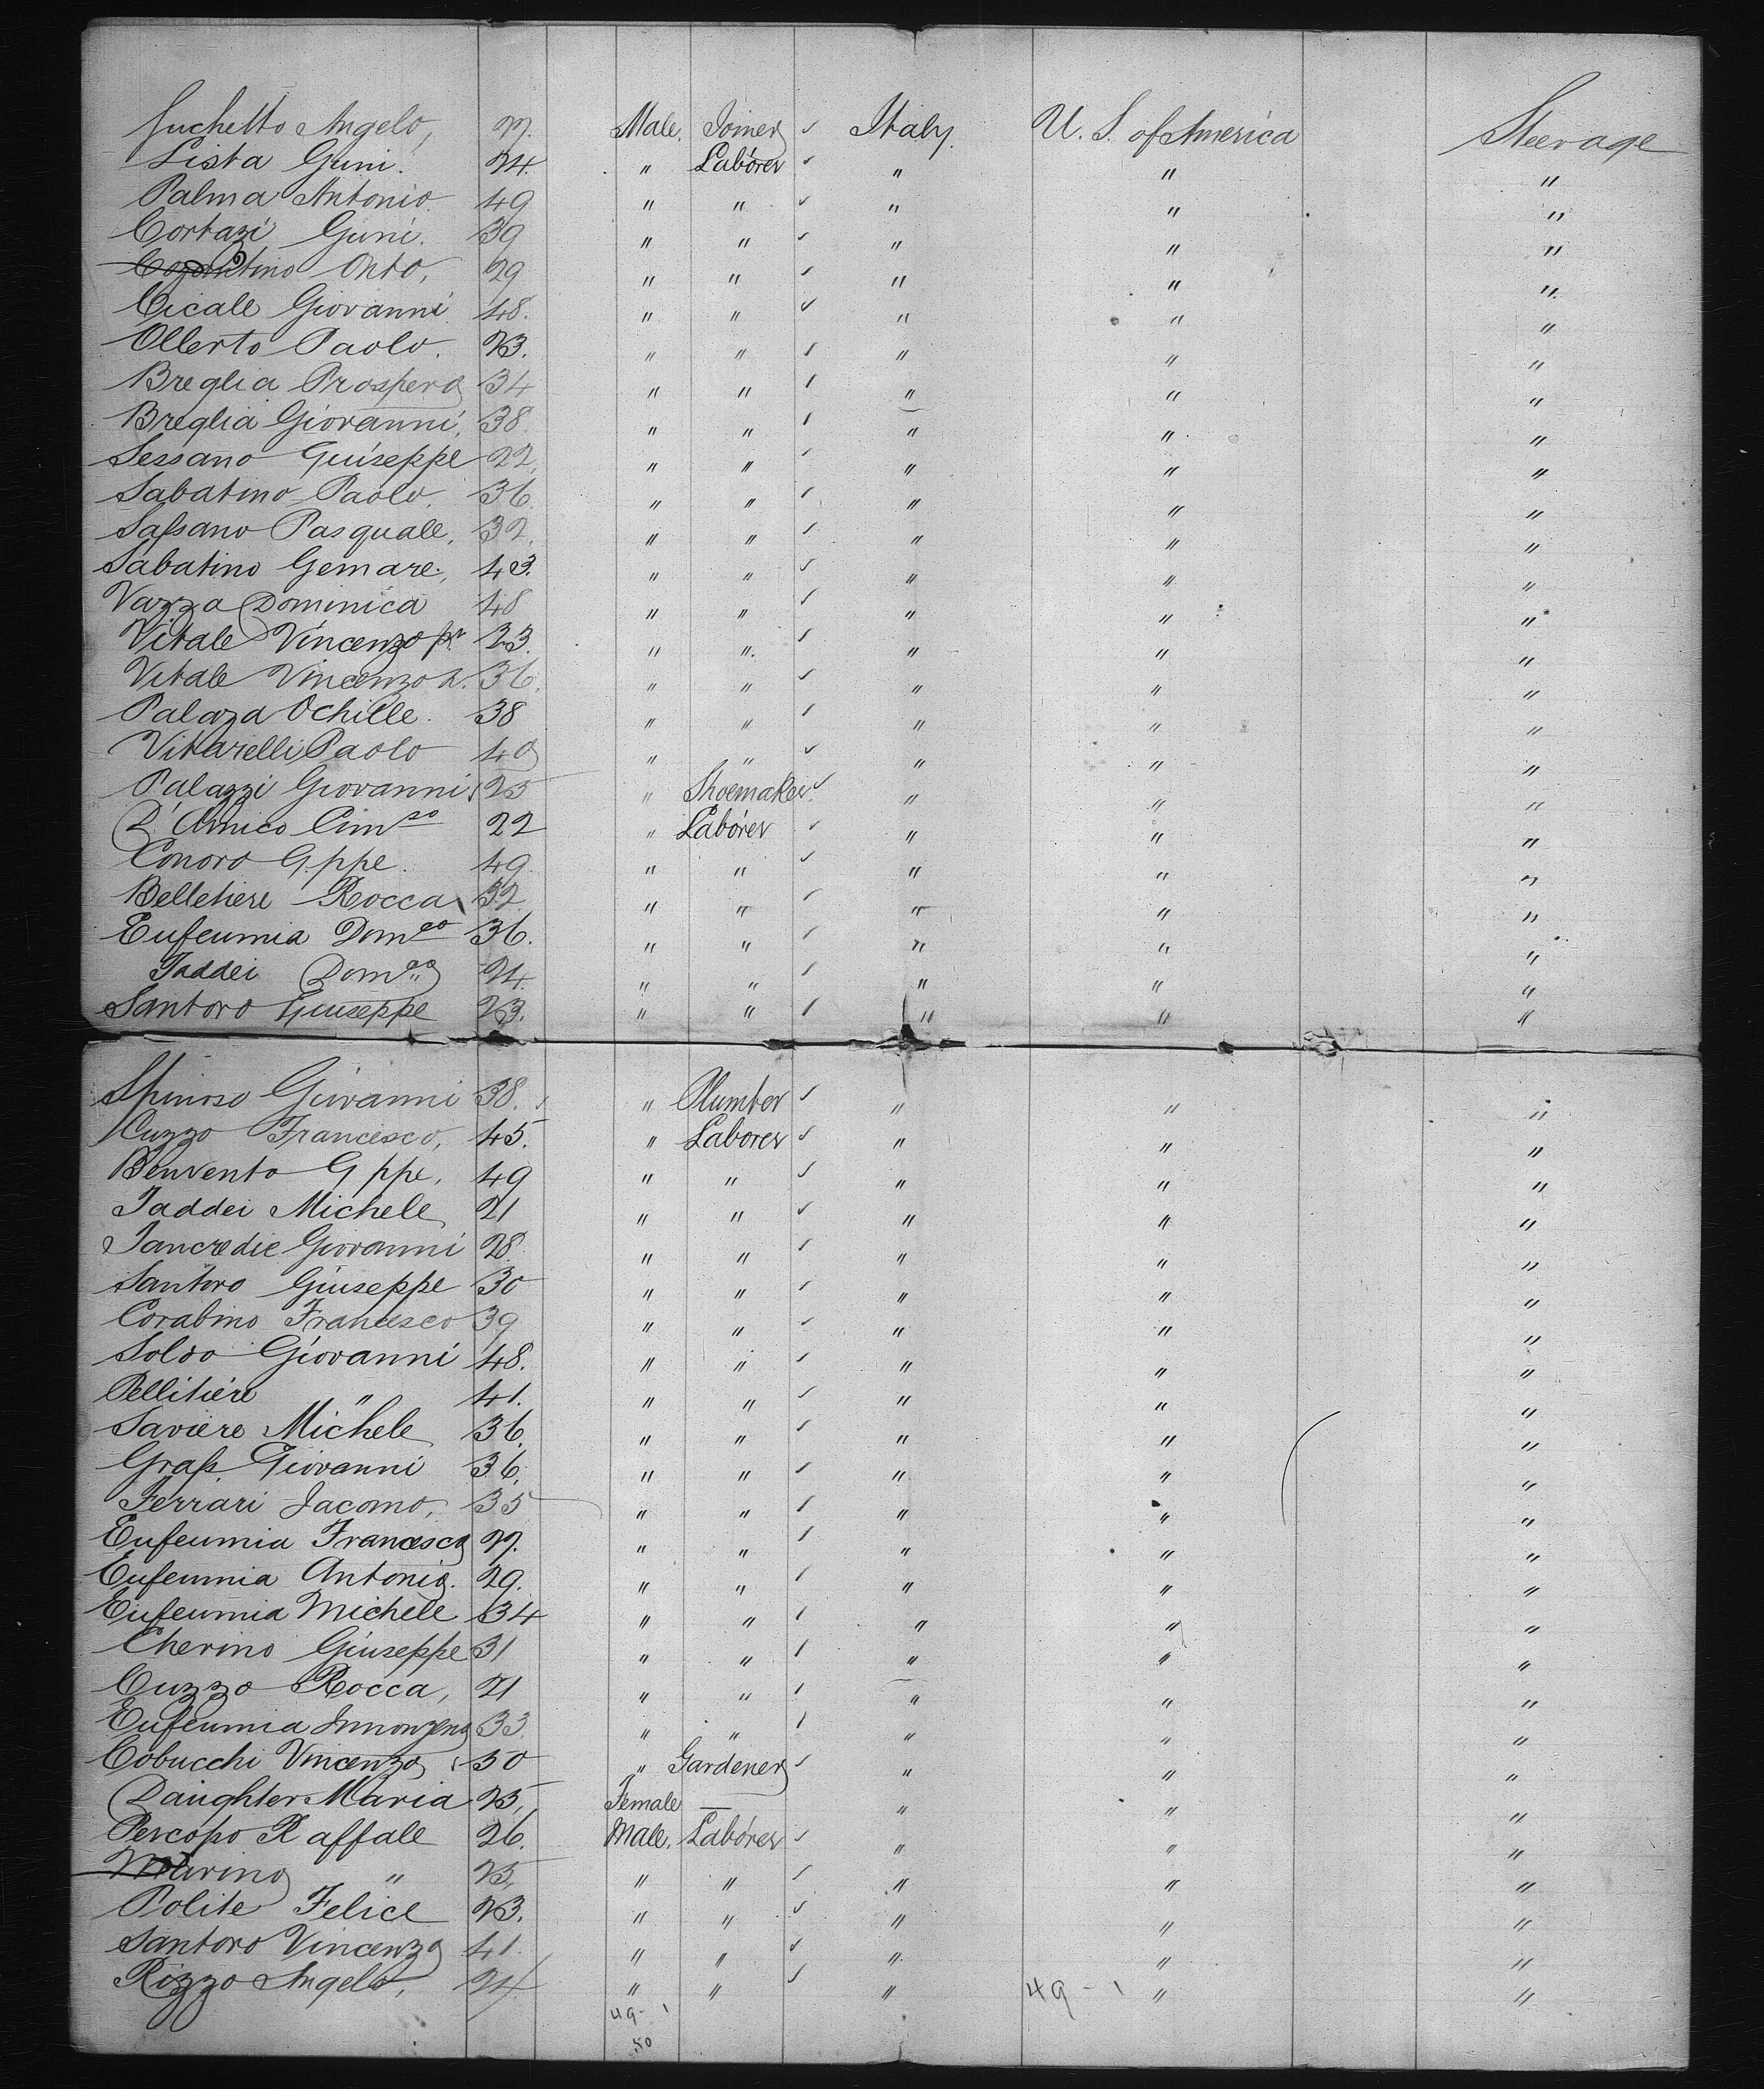 Fuchetto Angelo, 27. Male. Joiner ✓ Italy. U. S. of America Steerage
Lista Guni. 24. " Laborer ✓ " " "
Palma Antonio 49 " " ✓ " " "
Cortazi Guni. 39 " " ✓ " " "
Cosentino Onto, 29 " " ✓ " " "
Cicale Giovanni 48. " " ✓ " " "
Ollerto Paolo. 23. " " ✓ " " "
Breglia Prospero 34 " " ✓ " " "
Breglia Giovanni, 38. " " ✓ " " "
Sessano Guiseppe 22, " " ✓ " " "
Sabatino Paolo. 36 " " ✓ " " "
Sassano Pasquale, 32, " " ✓ " " "
Sabatino Gemare., 43. " " ✓ " " "
Vazza Dominica 48 " " ✓ " " "
Vitale Vincenzo pr 23. " " ✓ " " "
Vitale Vincenzo 2. 36. " " ✓ " " "
Palaza Ochille. 38 " " ✓ " " "
Vittarelli Paolo 40 " " ✓ " " "
Palazzi Giovanni 25 " Shoemaker. ✓ " " "
D'Amico Cimso 22 " Laborer ✓ " " "
Conoro Gppe. 49 " " ✓ " " "
Belletiere Rocca 32 " " ✓ " " "
Eufeumia Domco 36. " " ✓ " " "
Taddei Domco 24. " " ✓ " " "
Santoro Giuseppe 23. " " ✓ " " "
Spinoso Giovanni 38. " Plumber ✓ " " "
Cuzzo Francesco, 45. " Laborer ✓ " " "
Benvento G ppe, 49 " " ✓ " " "
Taddei Michele 21 " " ✓ " " "
Tancredie Giovanni 28 " " ✓ " " "
Santoro Giuseppe 30 " " ✓ " " "
Corabino Francesco 39 " " ✓ " " "
Soldo Giovanni 48. " " ✓ " " "
Pellitiere " 41. " " ✓ " " "
Saviere Michele 36. " " ✓ " " "
Grass. Giovanni 36. " " ✓ " " "
Ferrari Jacomo, 35 " " ✓ " " "
Eufeumia Francesco 27. " " ✓ " " "
Eufeumia Antonio. 29. " " ✓ " " "
Eufeumia Michele 34 " " ✓ " " "
Cherino Giuseppe 31 " " ✓ " " "
Cuzzo Rocca, 21 " " ✓ " " "
Eufeumia Innonzeno 33 " " ✓ " " "
Cobucchi Vincenzo 50 " Gardener ✓ " " "
Daughter Maria 25, Female — " " "
Percopo Raffale 26. Male. Laborer ✓ " " "
Marino " 25, " " ✓ " " "
Polite Felice 23. " " ✓ " " "
Santoro Vincenzo 41. " " ✓ " " "
Rizzo Angelo, 24 " " ✓ " 49 - 1 " "
49 - 1
50